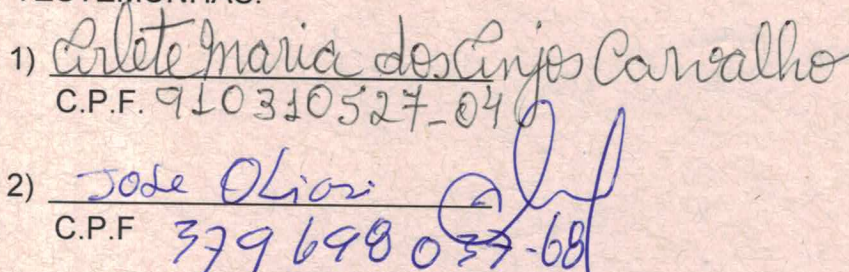 TESTEMUNHAS:
1) Arlete Maria dos Anjos Carvalho
C.P.F. 910310527-04
2) Jose Oliosi
C.P.F 379 698 037-68